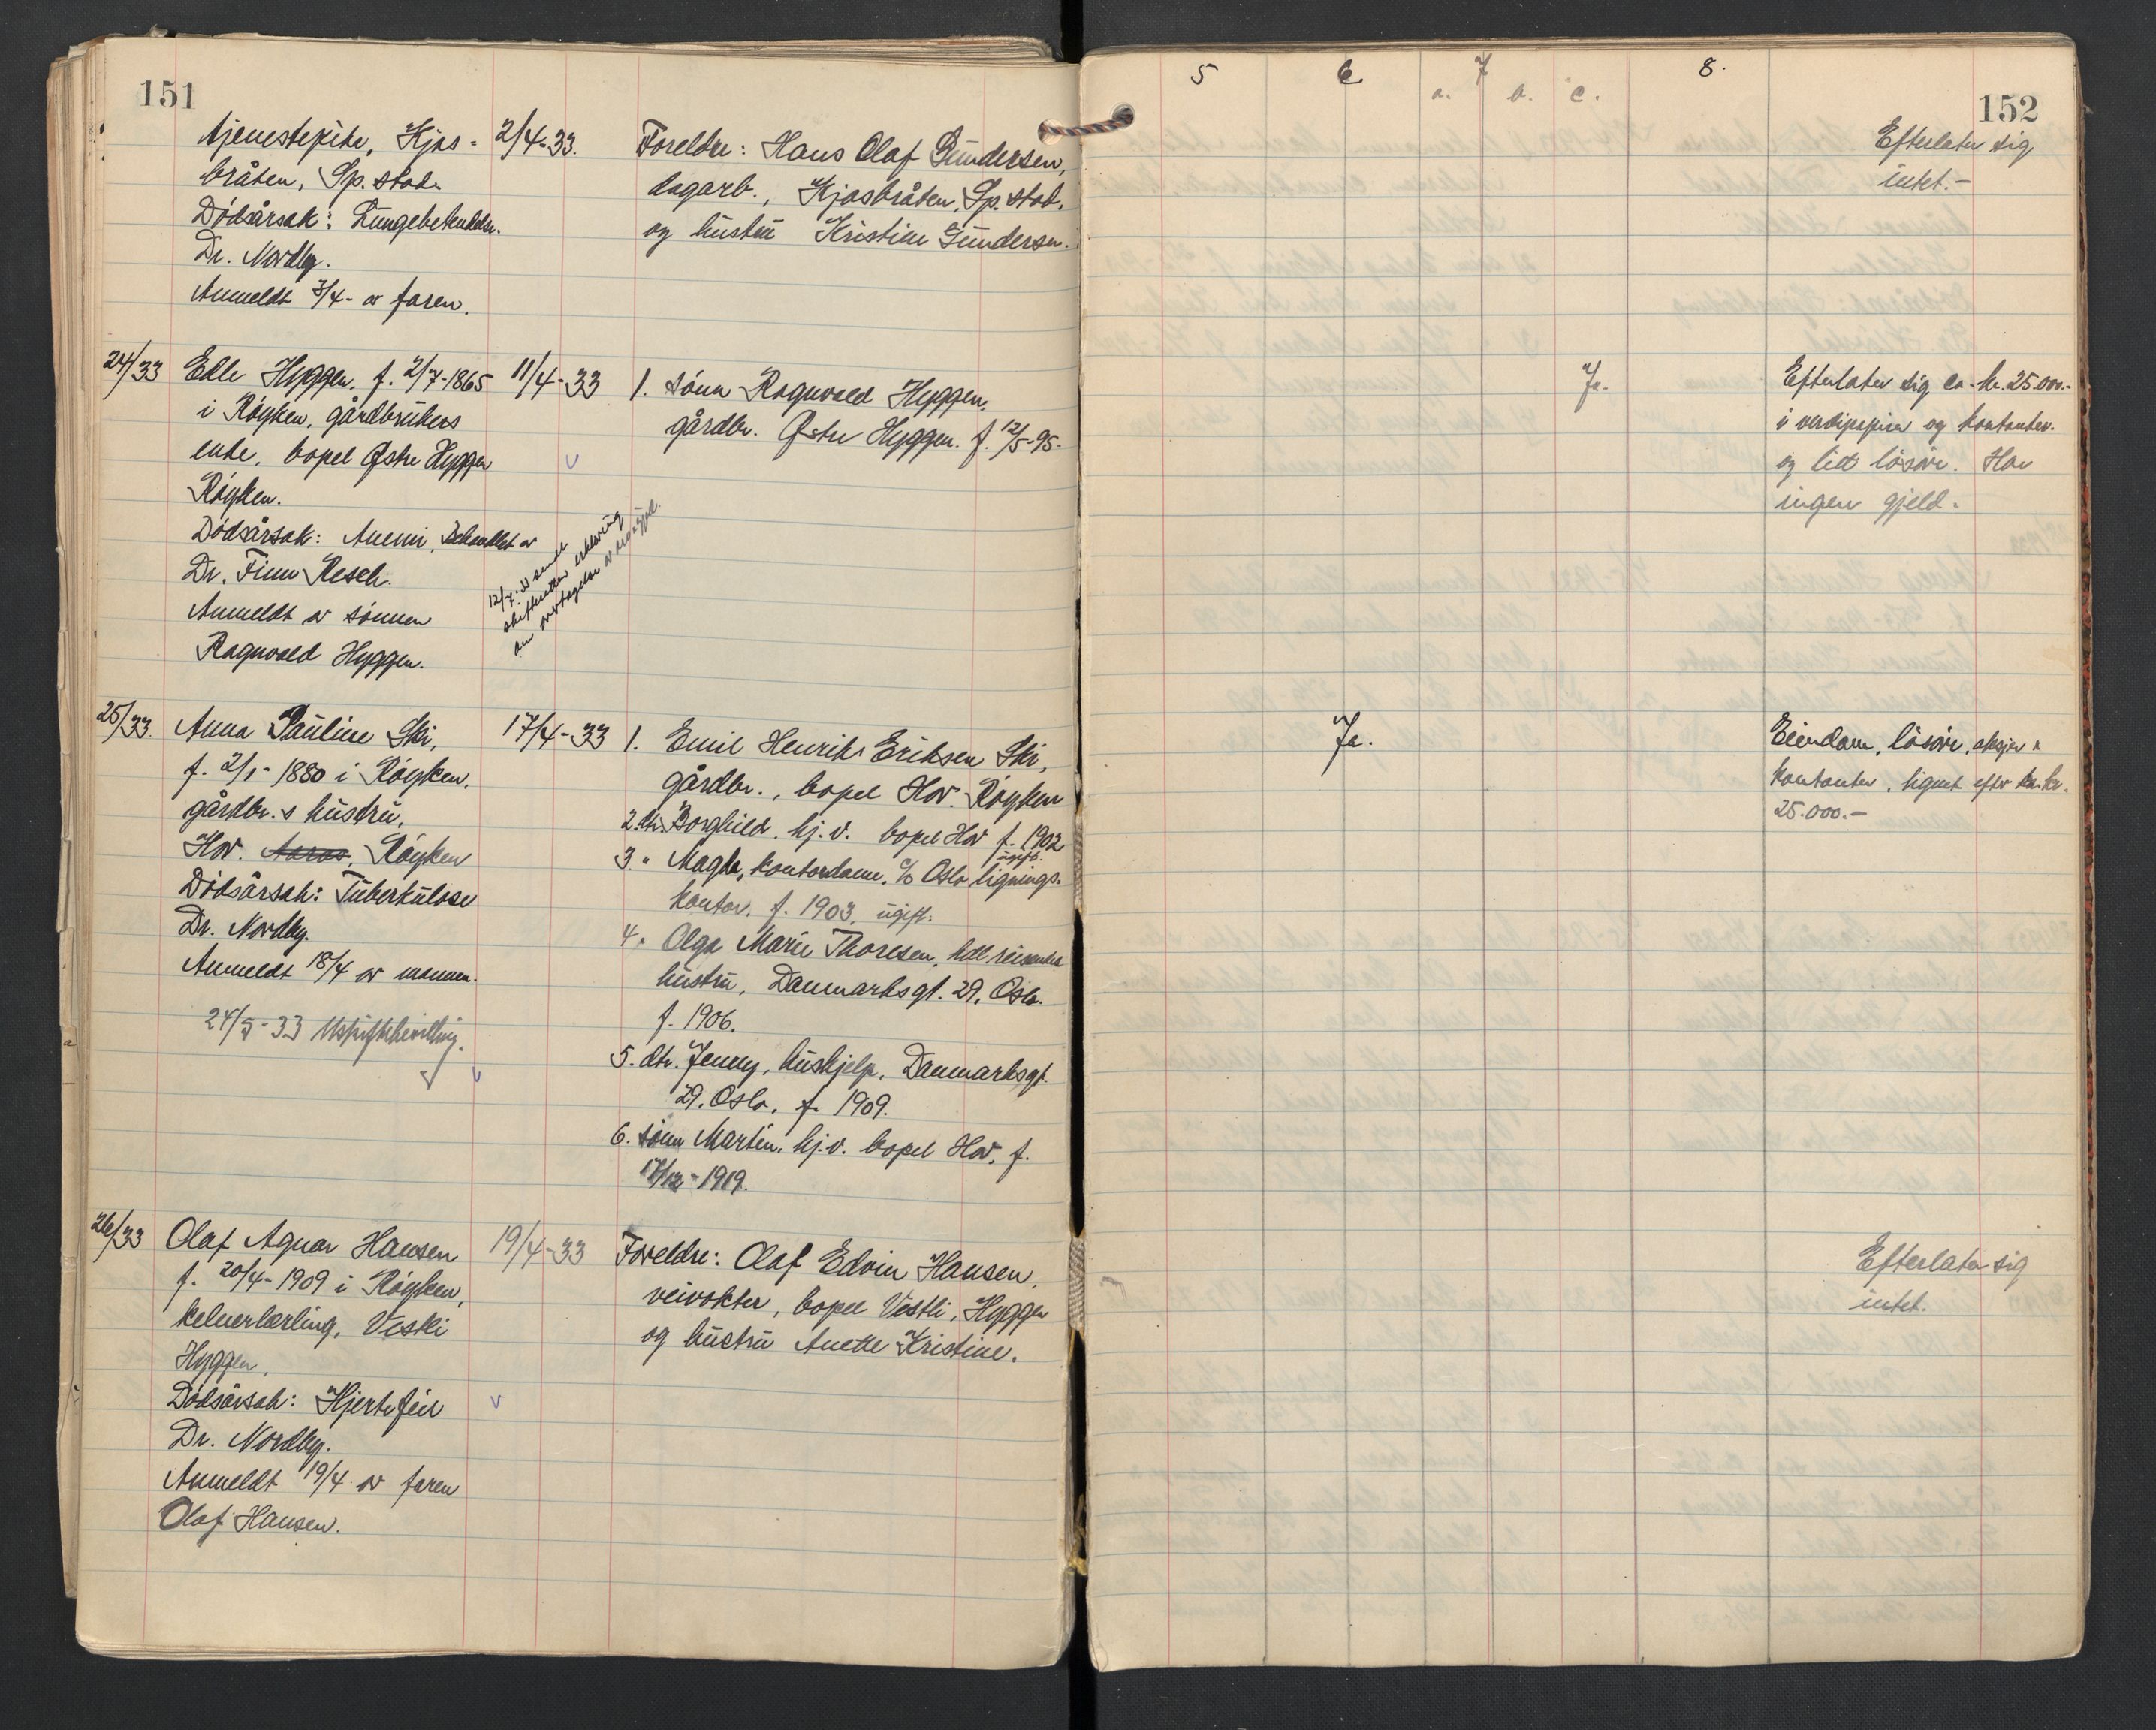 151
tjenestepike, Kjos-
bråten, Sp.stad.
Dödsårsak: Lungebetendelse.
Dr. Nordby.
Anmeldt 3/4- av faren.
2/4-33.
Foreldre: Hans Olaf Gundersen,
dagarb., Kjosbråten, Sp.stad.
og hustru Kristine Gundersen.
24/33
Edle Hyggen, f. 2/7-1865
i Röyken, gårdbrukers
enke, bopel Østre Hyggen
Röyken.
Dödsårsak: Anemi, Behandlet av
Dr. Finn Resch.
Anmeldt av sönnen
Ragnvald Hyggen.
11/4-33
12/4-33 sendt
skifteretten erklæring
om overtagelse av arv og gjeld.
1. sönn Ragnvald Hyggen,
gårdbr. Østre Hyggen. f. 12/5-95.
25/33.
Anna Pauline Ski,
f. 2/1-1880 i Röyken,
gårdbr.s hustru,
Hov. Aaros, Röyken
Dödsårsak: Tuberkulose
Dr. Nordby.
Anmeldt 18/4 av mannen.
24/5-33 Uskiftebevilling.
17/4-33
1. Emil Henrik Eriksen Ski,
gårdbr., bopel Hov. Röyken
2. dtr. Borghild, hj.v. bopel Hov f. 1902
ugift.
3. " Magda, kontordame, c/o Oslo lignings-
kontor, f. 1903, ugift.
4. " Olga Marie Thoresen, hdl reisendes
hustru, Danmarksgt. 29, Oslo.
f. 1906.
5. dtr. Jenny, hushjelp, Danmarksgt.
29, Oslo, f. 1909.
6. sönn Martin, hj.v. bopel Hov, f.
17/12-1919.
26/33
Olaf Agnar Hansen
f. 20/4-1909 i Röyken,
kelnerlærling, Vestli
Hyggen,
Dödsårsak: Hjertefeil
Dr. Nordby.
Anmeldt 19/4 av faren
Olaf Hansen.
19/4-33
Foreldre: Olaf Edvin Hansen,
veivokter, bopel Vestli, Hyggen
og hustru Anette Kristine.
5
6
7
a. b. c.
8.
152
Efterlater sig
intet.-
Ja.
Efterlater sig ca. kr. 25.000.-
i verdipapirer og kontanter.
og litt lösöre. Har
ingen gjeld.
Ja.
Eiendom, lösöre, aksjer &
kontanter, lignet efter ca. kr.
25.000.-
Efterlater sig
intet.